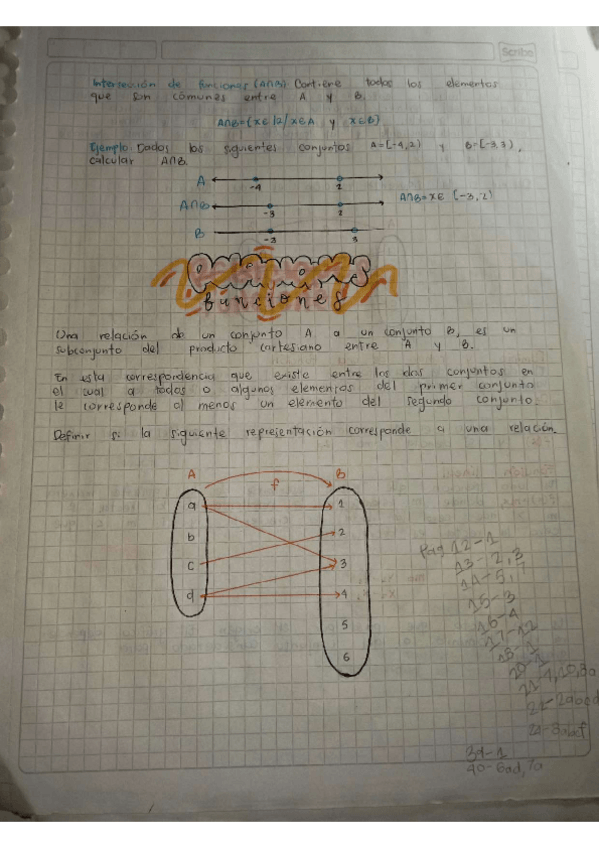 Scribe
Intersección de funciones (A∩B) Contiene todos los elementos
que son comunes entre A y B.
A∩B={x∈R/x∈A y x∈B}
Ejemplo: Dados los siguientes conjuntos A=[-4,2) y B=[-3,3),
calcular A∩B.
A -4 2
A∩B -3 2 A∩B=x∈ [-3,2)
B -3 3
funciones
Una relación de un conjunto A a un conjunto B, es un
subconjunto del producto cartesiano entre A y B.
En esta correspondencia que existe entre los dos conjuntos en
el cual a todos o algunos elementos del primer conjunto
le corresponde al menos un elemento del segundo conjunto.
Definir si la siguiente representación corresponde a una relación.
A f B
a 1
b 2
c 3
d 4
5
6
Pag 12-1
13-2,3
14-5,7
15-3
16-4
17-12
18-1
20-1
24-3abcf
39-1
40-6ad,7a